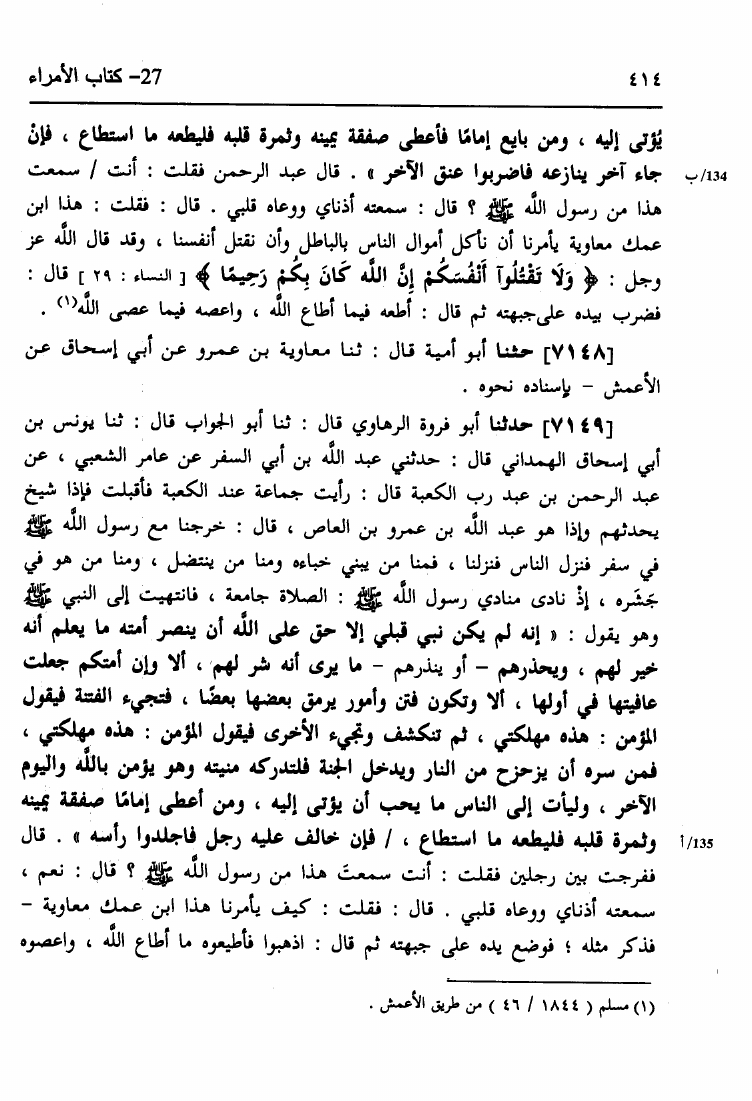 ٤١٤ 27- كتاب الأمراء
يُؤتى إليه ، ومن بايع إمامًا فأعطى صفقة يمينه وثمرة قلبه فليطعه ما استطاع ، فإنْ
جاء آخر ينازعه فاضربوا عنق الآخر » . قال عبد الرحمن فقلت : أنت / سمعت 134/ب
هذا من رسول الله ﷺ ؟ قال : سمعته أذناي ووعاه قلبي . قال : فقلت : هذا ابن
عمك معاوية يأمرنا أن نأكل أموال الناس بالباطل وأن نقتل أنفسنا ، وقد قال الله عز
وجل : ﴿ وَلَا تَقْتُلُوٓا أَنْفُسَكُمْ إِنَّ اللَّه كَانَ بِكُمْ رَحِيمًا ﴾ [ النساء : ٢٩ ] قال :
فضرب بيده على جبهته ثم قال : أطعه فيما أطاع الله ، واعصه فيما عصى الله(١) .
[٧١٤٨] حثنا أبو أمية قال : ثنا معاوية بن عمرو عن أبي إسحاق عن
الأعمش – بإسناده نحوه .
[٧١٤٩] حدثنا أبو فروة الرهاوي قال : ثنا أبو الجواب قال : ثنا يونس بن
أبي إسحاق الهمداني قال : حدثني عبد الله بن أبي السفر عن عامر الشعبي ، عن
عبد الرحمن بن عبد رب الكعبة قال : رأيت جماعة عند الكعبة فأقبلت فإذا شيخ
يحدثهم وإذا هو عبد الله بن عمرو بن العاص ، قال : خرجنا مع رسول الله ﷺ
في سفر فنزل الناس فنزلنا ، فمنا من يبني خباءه ومنا من ينتضل ، ومنا من هو في
جَشَره ، إذْ نادى منادي رسول الله ﷺ : الصلاة جامعة ، فانتهيت إلى النبي ﷺ
وهو يقول : « إنه لم يكن نبي قبلي إلا حق على الله أن ينصر أمته ما يعلم أنه
خير لهم ، ويحذرهم – أو ينذرهم – ما يرى أنه شر لهم ، ألا وإن أمتكم جعلت
عافيتها في أولها ، ألا وتكون فتن وأمور يرمق بعضها بعضًا ، فتجيء الفتنة فيقول
المؤمن : هذه مهلكتي ، ثم تنكشف وتجيء الأخرى فيقول المؤمن : هذه مهلكتي ،
فمن سره أن يزحزح من النار ويدخل الجنة فلتدركه منيته وهو يؤمن بالله واليوم
الآخر ، وليأت إلى الناس ما يحب أن يؤتى إليه ، ومن أعطى إمامًا صفقة يمينه
وثمرة قلبه فليطعه ما استطاع ، / فإن خالف عليه رجل فاجلدوا رأسه » . قال 135/أ
ففرجت بين رجلين فقلت : أنت سمعتَ هذا من رسول الله ﷺ ؟ قال : نعم ،
سمعته أذناي ووعاه قلبي . قال : فقلت : كيف يأمرنا هذا ابن عمك معاوية –
فذكر مثله ؛ فوضع يده على جبهته ثم قال : اذهبوا فأطيعوه ما أطاع الله ، واعصوه
(١) مسلم ( ١٨٤٤ / ٤٦ ) من طريق الأعمش .